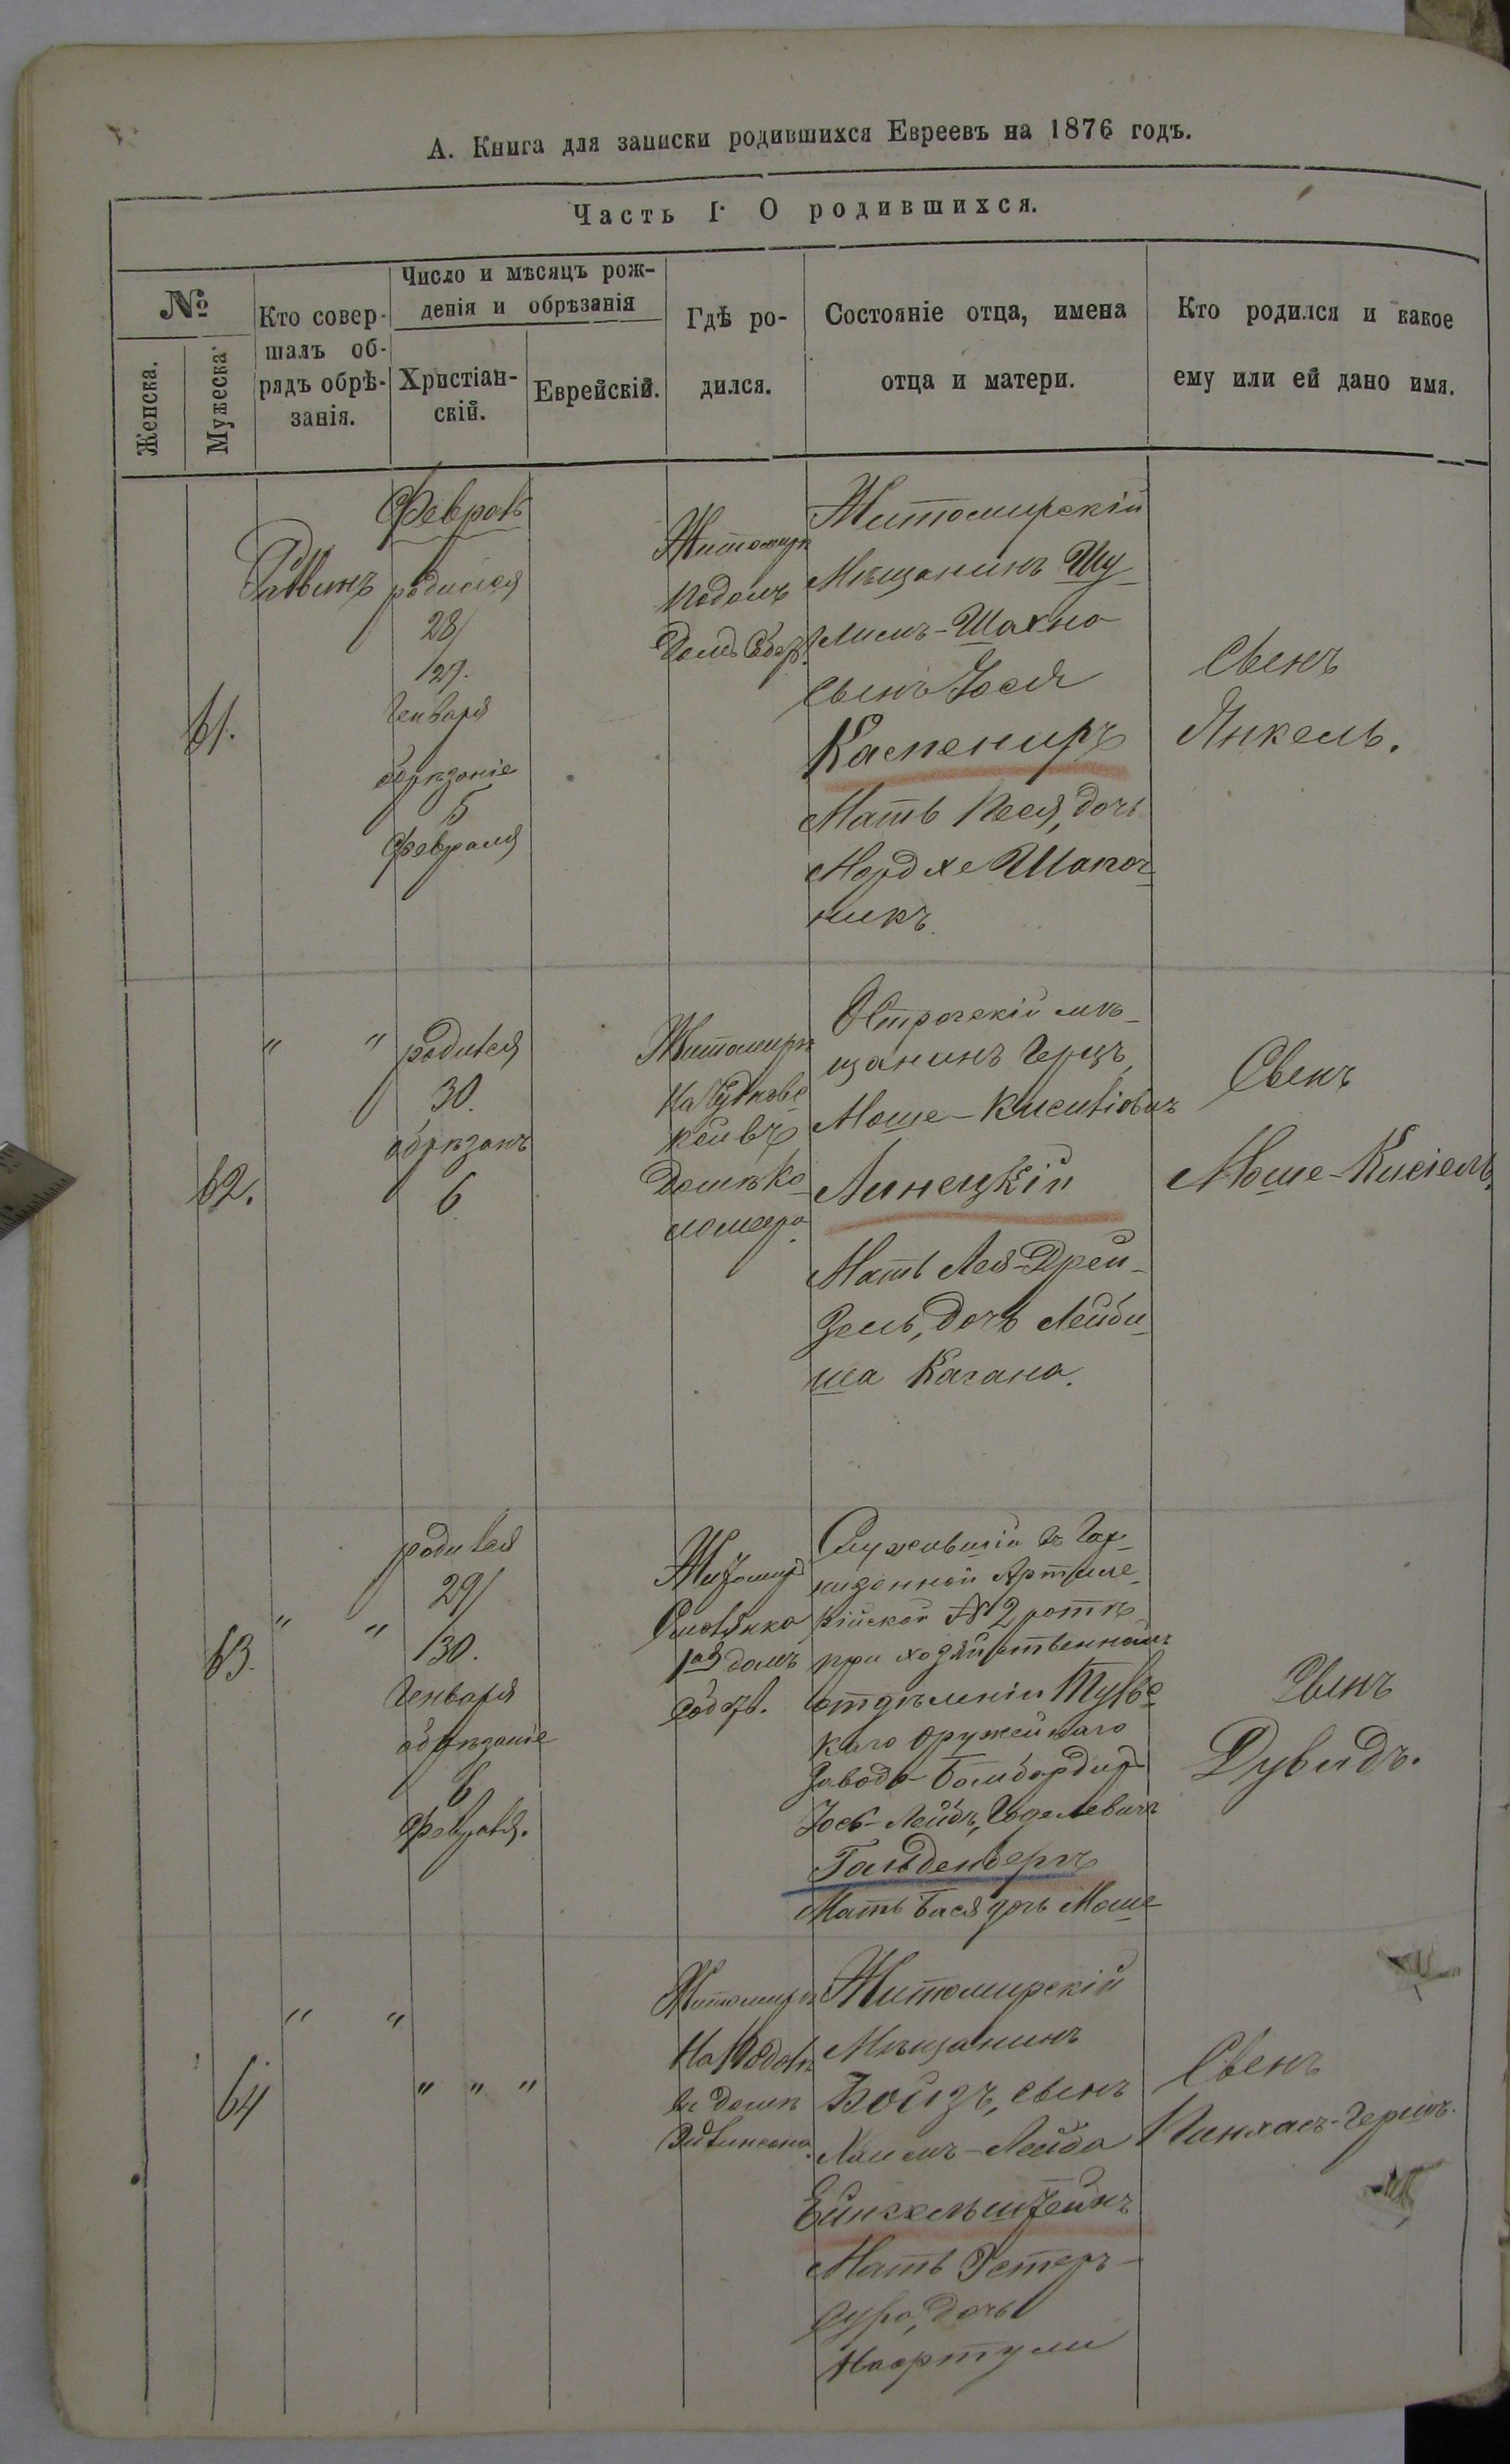 А. Книга для записки родившихся Евреевъ на 1876 годъ.
Часть I. О родившихся.
№
Женска.
Мужеска
Кто совер-
шалъ об-
рядъ обрѣ-
занія.
Число и мѣсяцъ рож-
денія и обрѣзанія
Христіан-
скій.
Еврейскій.
Гдѣ ро-
дился.
Состояніе отца, имена
отца и матери.
Кто родился и какое
ему или ей дано имя.
61.
Раввинъ
Февраль
родился
28/
/29.
Генваря
обрѣзаніе
5
Февраля
Житомиръ
Подолъ
Домъ
Житомирскій
Мѣщанинъ Шу-
лимъ-Шахно
сынъ Іося
Камениръ
Мать Песя, дочь
Мордхе Шапоч-
никъ.
Сынъ
Янкель.
62.
" "
родился
30.
обрѣзанъ
6
Житомиръ
На
Домъ Ко-
ломеера.
Острогскій мѣ-
щанинъ Герцъ
Моше-Кисилiовичъ
Линецкій
Мать Лея-Дрей-
зель, дочь Лейби-
ша Кагана.
Сынъ
Моше-Кисіель.
63.
" "
родился
29/
/30.
Генваря
обрѣзаніе
6
Февраля.
Житомиръ
1ая домъ
Служившій въ Гар-
низонной Артиле-
рійской № 2 ротѣ
при хозяйственномъ
отдѣленіи Тульс-
каго Оружейнаго
Завода-Бомбардиръ
Іось-Лейбъ, Годелевичъ
Гольденбергъ
Мать Бася дочь Моше
Сынъ
Дувидъ.
64
" "
" " "
Житомиръ
На Подолѣ
въ Домѣ
Житомирскій
Мѣщанинъ
сынъ
Хаимъ-Лейба
Мать Эстеръ-
Сура, дочь
Нафтули
Сынъ
Пинхасъ-Гершъ.